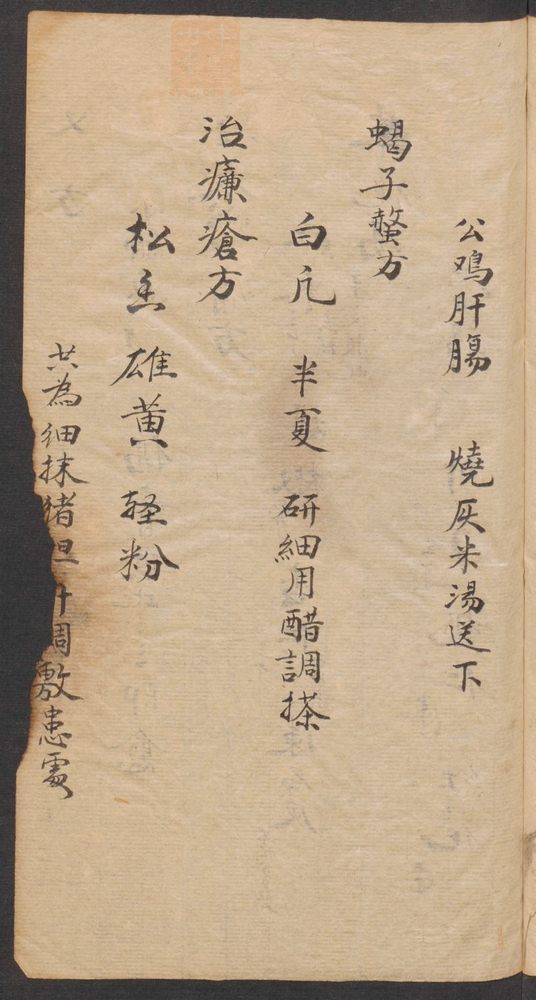 公鳮肝腸　燒灰米湯送下
蝎子螫方
白凡　半夏　研細用醋調搽
治㾾瘡方
松香　雄黄　轻粉
共為細抹猪胆汁調敷患處